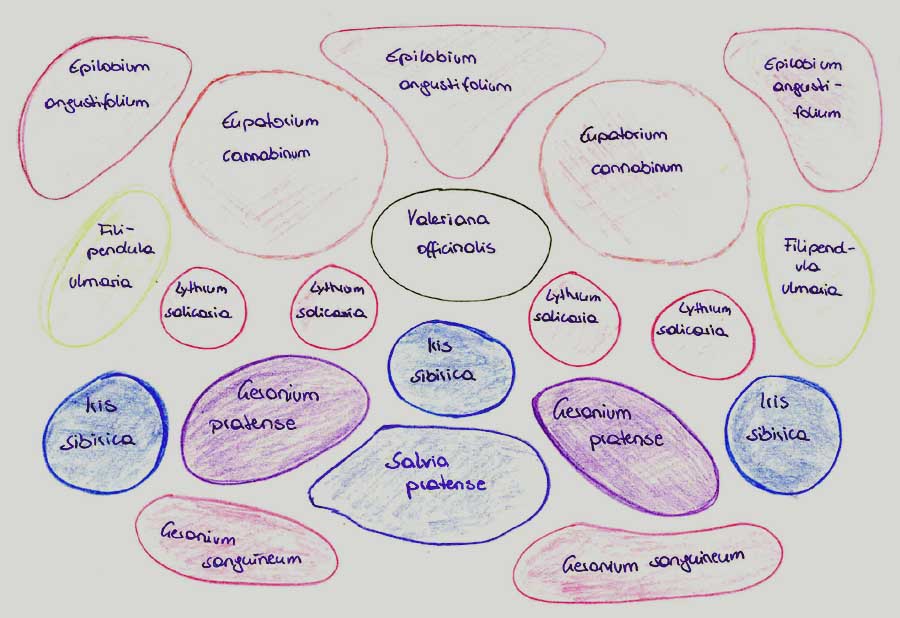 Epilobium
angustifolium
Epilobium
angustifolium
Epilobium
angusti-
folium
Eupatorium
cannabinum
Eupatorium
cannabinum
Fili-
pendula
ulmaria
Valeriana
officinalis
Filipend-
ula
ulmaria
Lythrum
salicaria
Lythrum
salicaria
Lythrum
salicaria
Lythrum
salicaria
Iris
sibirica
Iris
sibirica
Geranium
pratense
Geranium
pratense
Iris
sibirica
Salvia
pratense
Geranium
sanguineum
Geranium sanguineum